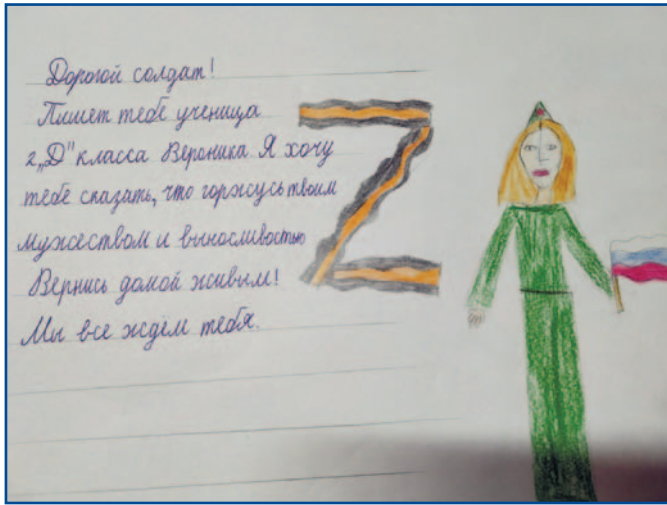 Дорогой солдат!
Пишет тебе ученица
2 „Д" класса Вероника. Я хочу
тебе сказать, что горжусь твоим
мужеством и выносливостью
Вернись домой живым!
Мы все ждём тебя.
Z